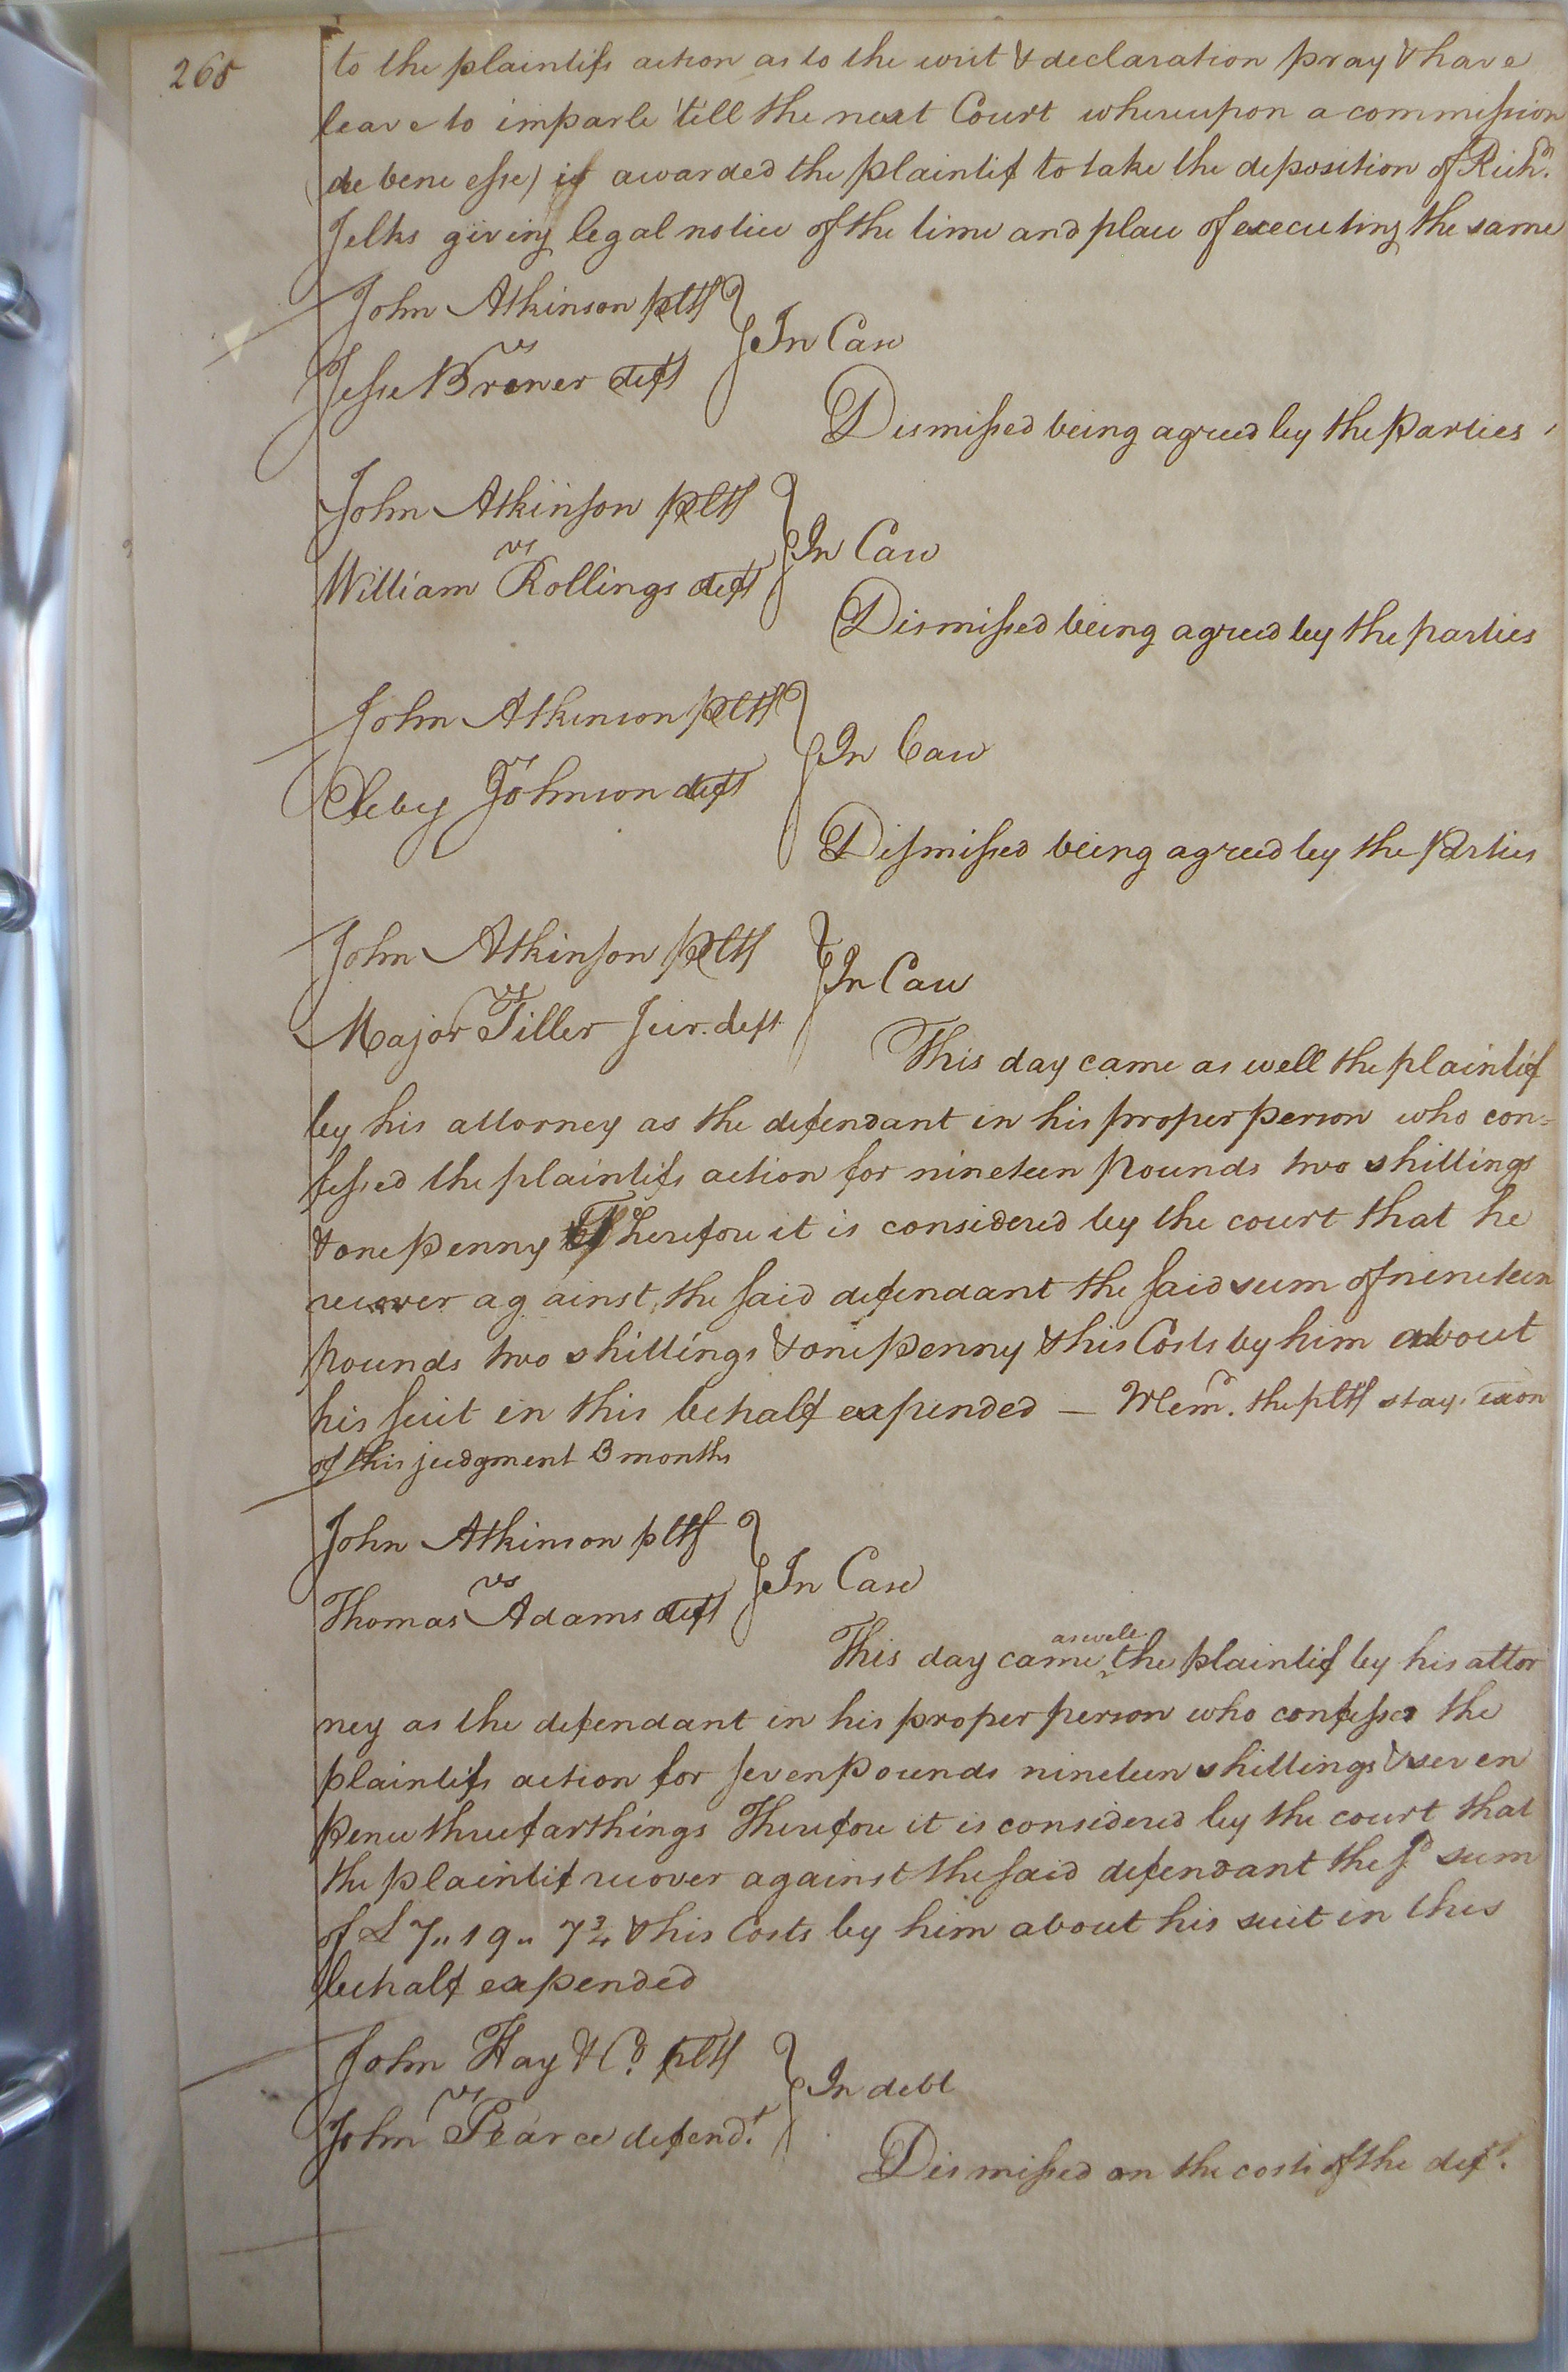 268
to the plaintifs action as to the writ & declaration pray & have
leave to imparle 'till the next Court whereupon a commission
(de bene esse) is awarded the plaintif to take the deposition of Richd.
Jelks giving legal notice of the time and place of executing the same
John Atkinson pltf
vs
In Case
Jesse Browner deft
Dismissed being agreed by the Parties
John Atkinson pltf
vs
In Case
William Rollings deft
Dismissed being agreed by the parties
John Atkinson pltf
vs
In Case
Johnson deft
Dismissed being agreed by the Parties
John Atkinson pltf
vs
In Case
Major Tiller Jur. deft
This day came as well the plaintif
by his attorney as the defendant in his proper person who con=
fessed the plaintifs action for nineteen pounds two shillings
& one penny Therefore it is considered by the court that he
recover against the said defendant the said sum of nineteen
pounds two shillings & one penny & his Costs by him about
his suit in this behalf expended — Memd. the pltf stays exon
of this judgment 3 months
John Atkinson pltf
vs
In Case
Thomas Adams deft
as well
This day came the plaintif by his attor
ney as the defendant in his proper person who confesses the
plaintifs action for seven pounds nineteen shillings & seven
pence three farthings Therefore it is considered by the court that
the plaintif recover against the said defendant the sd. sum
of £ 7,, 19,, 7¾ & his Costs by him about his suit in this
behalf expended
John Hay & Co. pltf
vs
In debt
John Pearce defendt.
Dismissed on the costs of the deft.